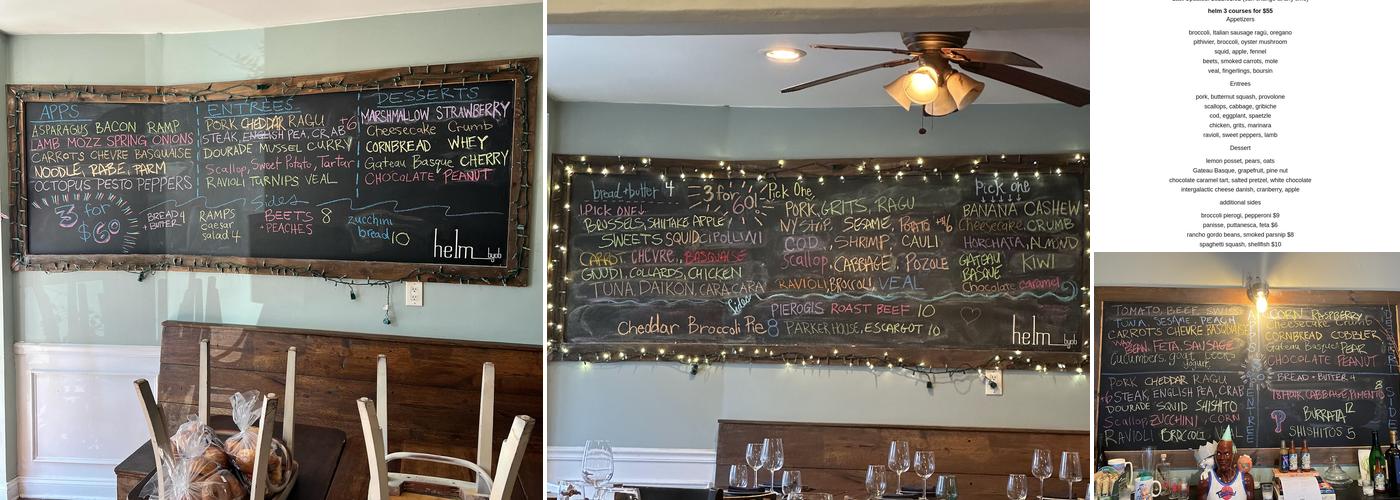 APPS
ASPARAGUS BACON RAMP
LAMB MOZZ SPRING ONIONS
CARROTS CHEVRE BASQUAISE
NOODLE, RABE, PARM
OCTOPUS PESTO PEPPERS
ENTREES
PORK CHEDDAR RAGU
STEAK, ENGLISH PEA, CRAB +6
DOURADE MUSSEL CURRY
Scallop, Sweet Potato, Tartar
RAVIOLI TURNIPS VEAL
DESSERTS
MARSHMALLOW STRAWBERRY
Cheesecake Crumb
CORNBREAD WHEY
Gateau Basque CHERRY
CHOCOLATE PEANUT
Sides
3 for $60
BREAD 4
+ BUTTER
RAMPS
caesar
salad 4
BEETS 8
+PEACHES
zucchini
bread 10
helm byob
bread+butter 4
3 for 60!
Pick One
Pick one
1.Pick one
BRUSSELS, SHIITAKE APPLE
SWEETS SQUID CIPOLLINI
CARROT CHEVRE, BASQUAISE
GNUDI, COLLARDS, CHICKEN
TUNA, DAIKON, CARA CARA
PORK, GRITS, RAGU
NY Strip, SESAME, POTATO +6
COD, SHRIMP, CAULI
Scallop, CABBAGE, POZOLE
RAVIOLI, BROCCOLI, VEAL
BANANA CASHEW
Cheesecake, CRUMB
HORCHATA, ALMOND
GATEAU BASQUE KIWI
Chocolate caramel
Sides
PIEROGIS ROAST BEEF 10
Cheddar Broccoli Pie 8
PARKER HOUSE, ESCARGOT 10
helm byob
helm 3 courses for $55
Appetizers
broccoli, Italian sausage ragú, oregano
pithivier, broccoli, oyster mushroom
squid, apple, fennel
beets, smoked carrots, mole
veal, fingerlings, boursin
Entrees
pork, butternut squash, provolone
scallops, cabbage, gribiche
cod, eggplant, spaetzle
chicken, grits, marinara
ravioli, sweet peppers, lamb
Dessert
lemon posset, pears, oats
Gateau Basque, grapefruit, pine nut
chocolate caramel tart, salted pretzel, white chocolate
intergalactic cheese danish, cranberry, apple
additional sides
broccoli pierogi, pepperoni $9
panisse, puttanesca, feta $6
rancho gordo beans, smoked parsnip $8
spaghetti squash, shellfish $10
TOMATO, BEEF, SWISS
TUNA SESAME, PEACH
CARROTS CHEVRE BASQUAISE
WAX BEAN, FETA, SAUSAGE
Cucumbers, goat, beets
yogurt
CORN RASPBERRY
Cheesecake Crumb
CORNBREAD COBBLER
Gateau Basque PEAR
CHOCOLATE PEANUT
BREAD + BUTTER 4
PORK CHEDDAR RAGU
+6 STEAK, ENGLISH PEA, CRAB
DOURADE SQUID SHISHITO
Scallop, ZUCCHINI, CORN
RAVIOLI BROCCOLI VEAL
ENTREE
PORK, CABBAGE, PIMENTO 8
BURRATA 12
SHISHITOS 5